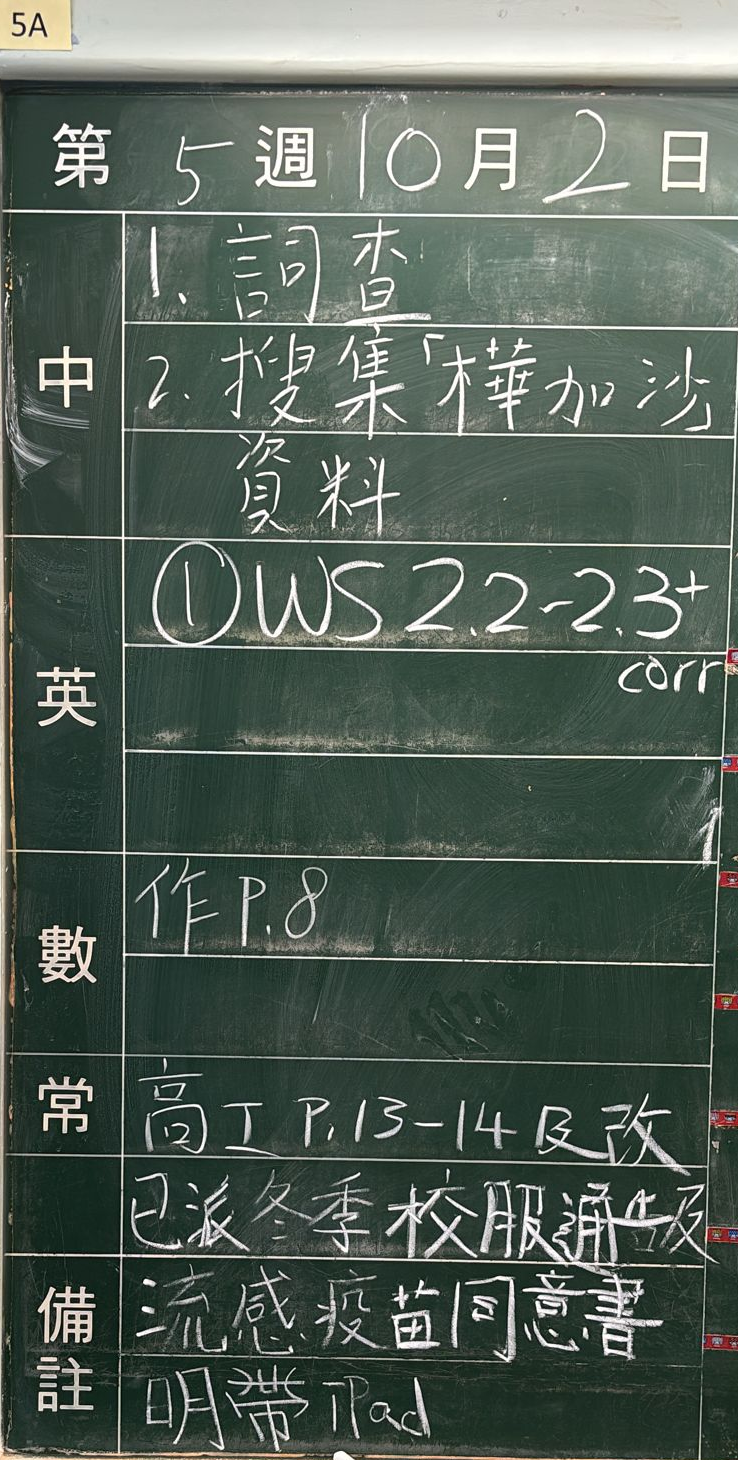 5A
第 5 週 10 月 2 日
中
1. 詞查
2. 搜集「樺加沙」
資料
英
① WS 2.2-2.3+
corr
數
作 P.8
常
高工 P.13-14 及改
已派冬季校服通告及
備註
流感疫苗同意書
明帶 iPad